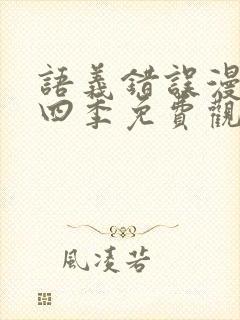 語義錯誤漫
四季免費觀
風凌若